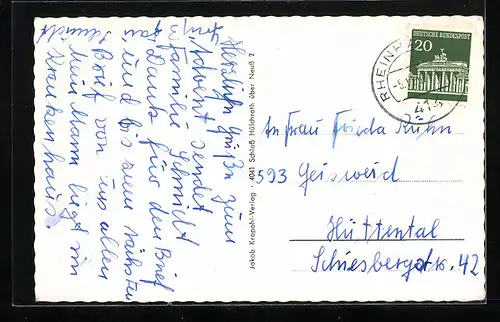 Herzlichen Grüße zum
Advent sendet
Familie Schmidt
Dank für den Brief
und bis zum nächsten
Brief von uns allen
Mein Mann liegt im
Krankenhaus
Jakob Krapohl-Verlag · 4041 Schloß Hülchrath über Neuß 2
DEUTSCHE BUNDESPOST
20
RHEINHA
413
An Frau Frieda Kühn
593 Geisweid
Hüttental
Schiesbergstr. 42